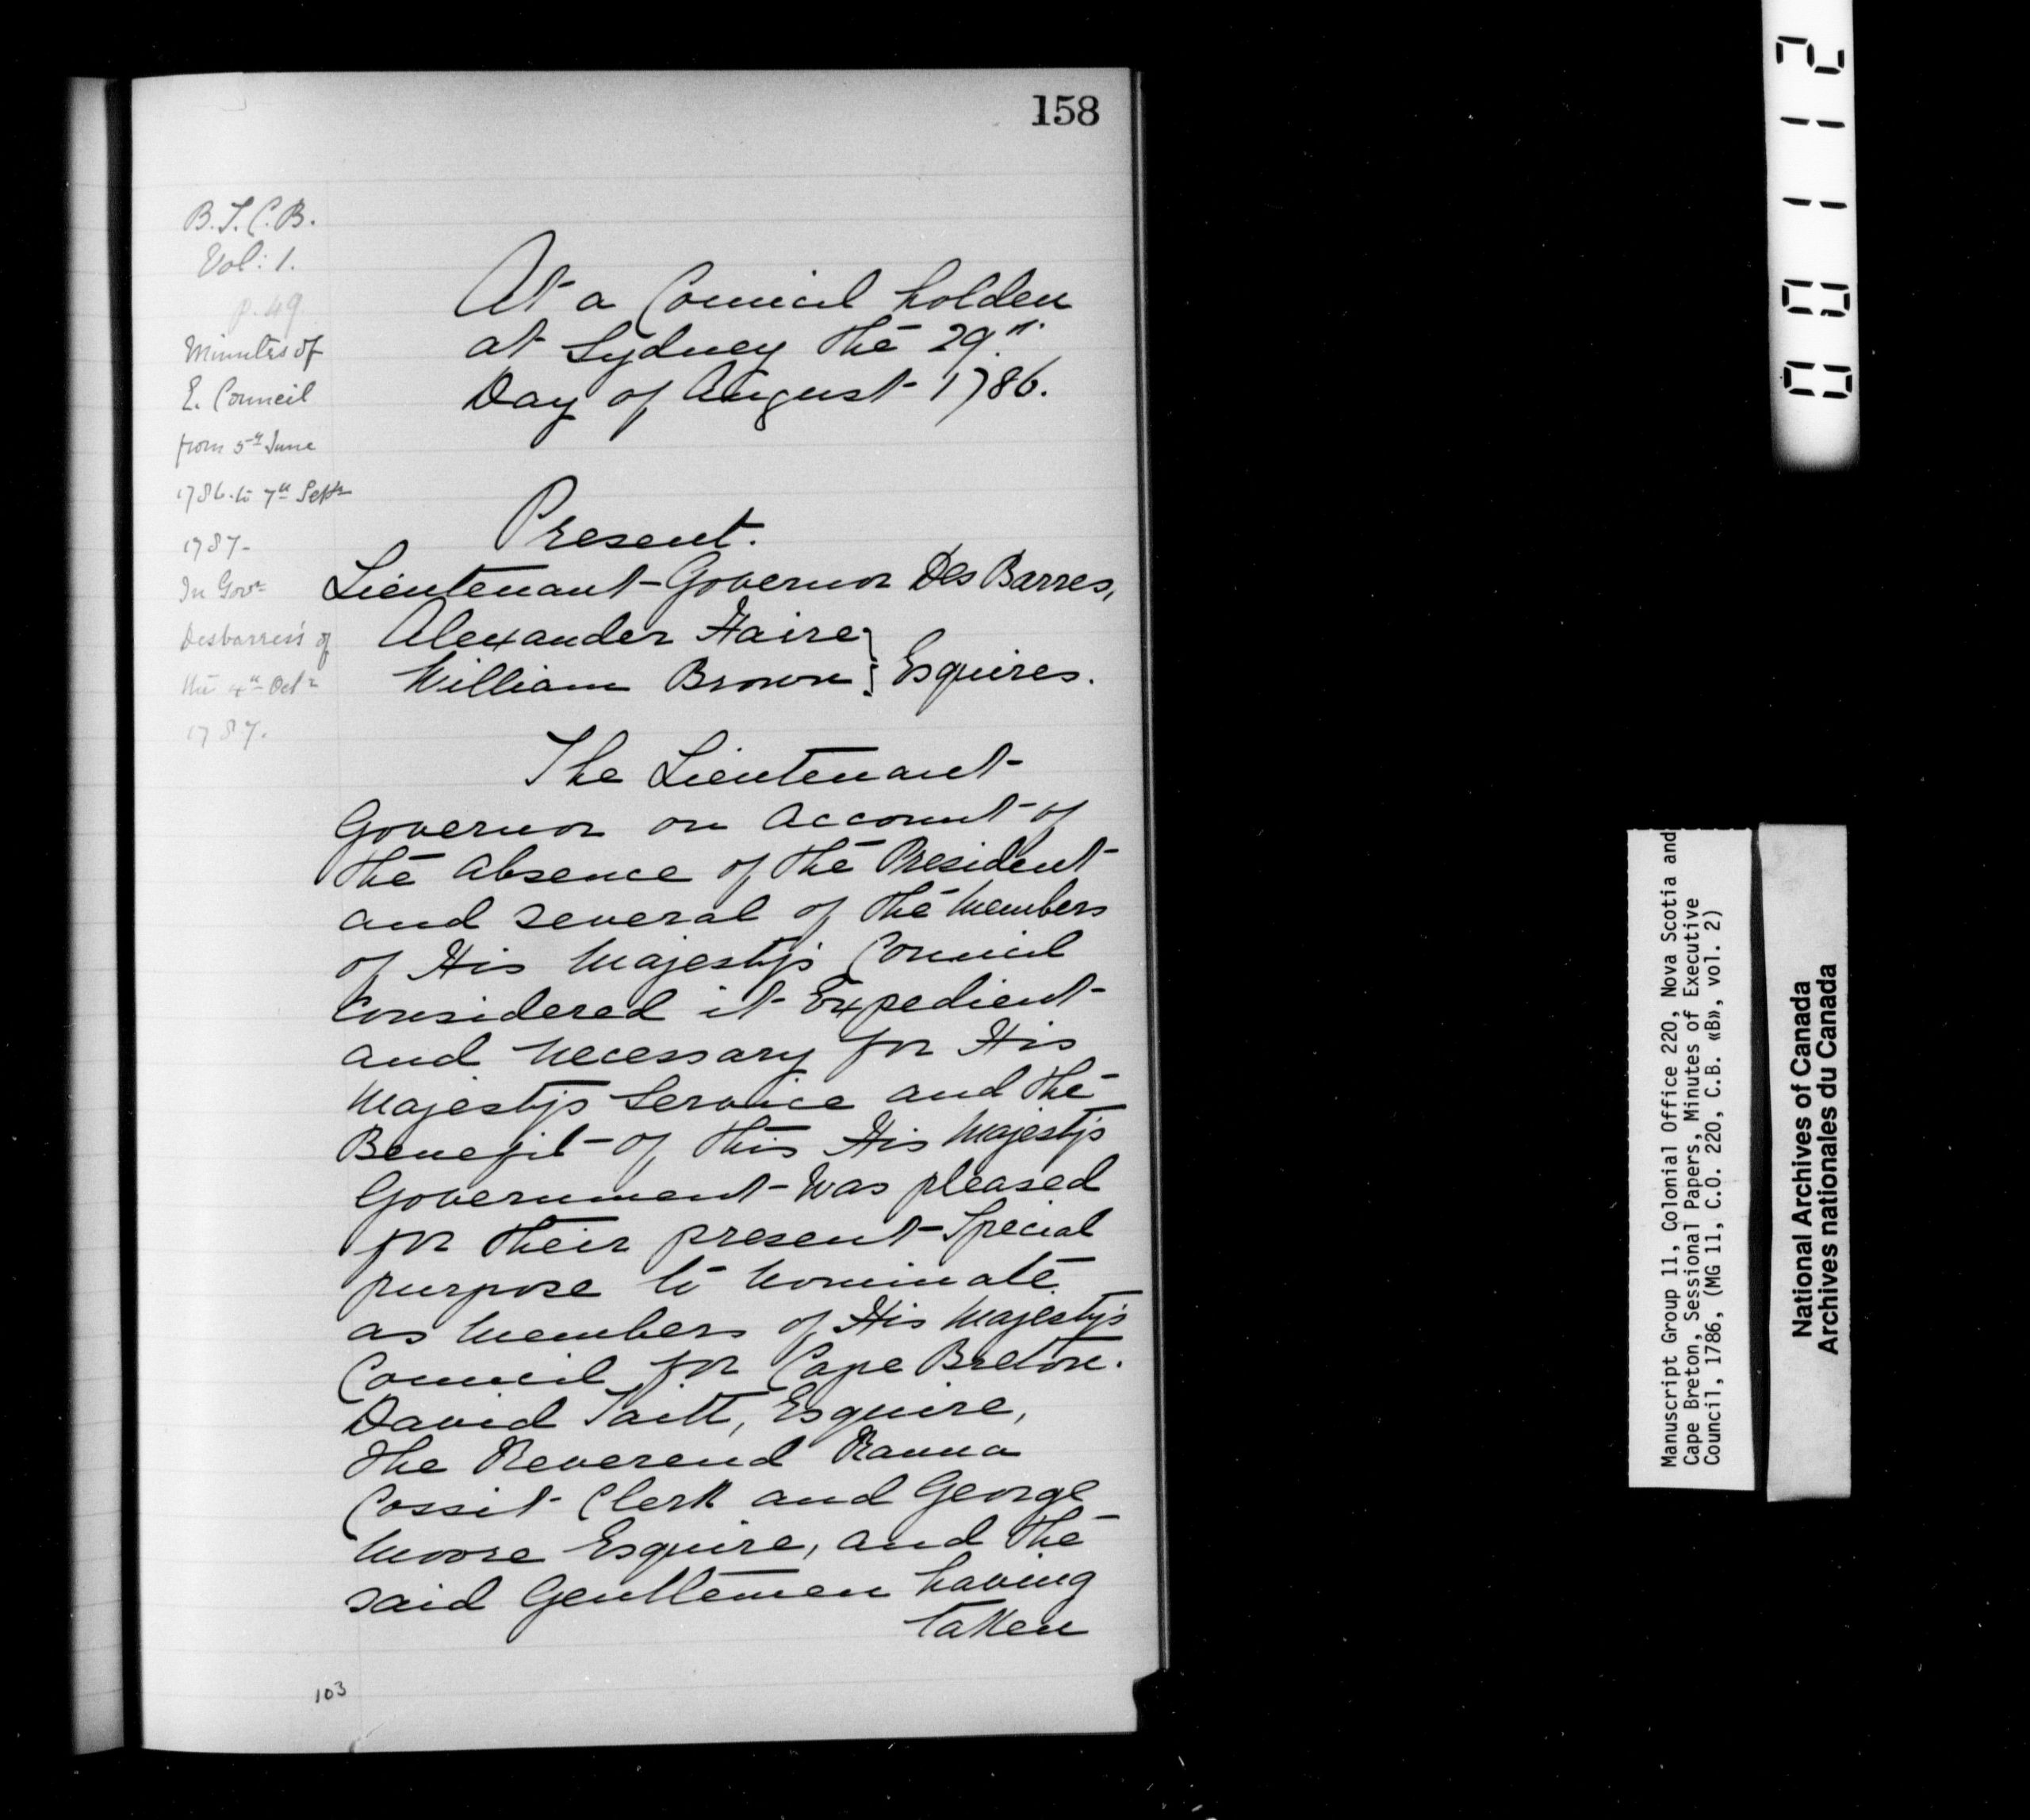 158
B.T.C.B.
Vol: 1.
p. 49
Minutes of
E. Council
from 5th June
1786 to 7th Septr
1787-
In Govr
Desbarres's of
the 4th Octr
1787.
At a Council holden
at Sydney the 29th
Day of August 1786.
Present.
Lieutenant-Governor DesBarres,
Alexander Haire
William Brown } Esquires.
The Lieutenant
Governor on account of
the absence of the President
and several of the Members
of His Majesty's Council
Considered it Expedient
and necessary for His
Majesty's Service and the
Benefit of this His Majesty's
Government was pleased
for their present Special
purpose to nominate
as Members of His Majesty's
Council for Cape Breton.
David Taitt, Esquire,
the Reverend Ranna
Cossit Clerk and George
Moore Esquire, and the
said Gentlemen having
taken
103
00112
Manuscript Group 11, Colonial Office 220, Nova Scotia and
Cape Breton, Sessional Papers, Minutes of Executive
Council, 1786, (MG 11, C.O. 220, C.B. «B», vol. 2)
National Archives of Canada
Archives nationales du Canada